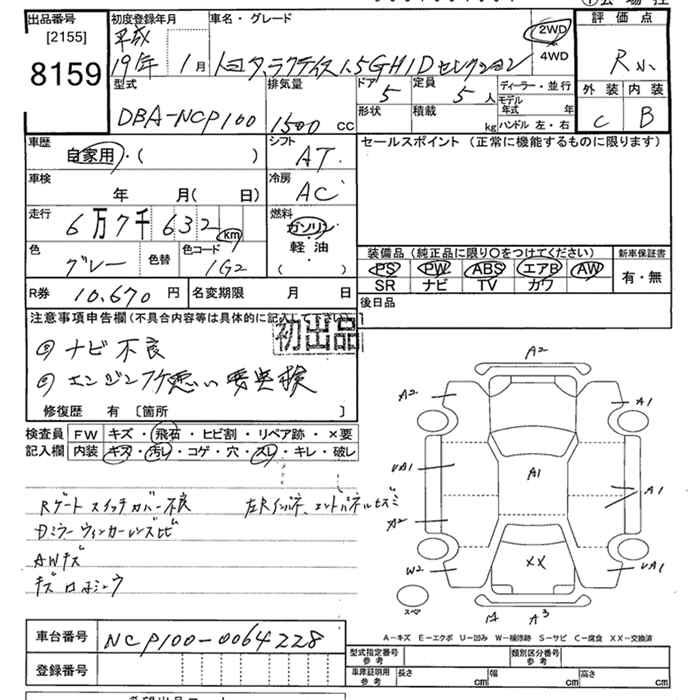 出品番号
[2155]
8159
初度登録年月
平成
19年 1月
車名・グレード
トヨタ ラクティス 1.5G HID セレクション
2WD
4WD
評価点
R
外装 内装
C B
型式
DBA-NCP100
排気量
1500 CC
ドア
5
定員
5 人
形状
積載
kg
ディーラー・並行
モデル年式 年
ハンドル 左・右
車歴
自家用・( )
シフト
AT
セールスポイント (正常に機能するものに限ります)
車検
年 月( 日)
冷房
AC
走行
6万7千632 km
燃料
ガソリン
軽・油
( ・ )
色
グレー
色替
色コード
1G2
装備品 (純正品に限り○をつけてください)
新車保証書
PS PW ABS エアB AW
SR ナビ TV カワ
有・無
R券 10,670 円
名変期限 月 日
後日品
注意事項申告欄(不具合内容等は具体的に記入して下さい)
初出品
ナビ不良
エンジン
修復歴 有 [箇所 ]
検査員
記入欄
FW キズ・飛石・ヒビ割・リペア跡・×要
内装 キズ・汚レ・コゲ・穴・スレ・キレ・破レ
Rゲートスイッチカバー不良
ミラーウィンカーレンズヒビ
AWキズ
A2
A2
A1
UA1
A1
A1
A2
W2
XX
UA1
スペア
A3
A-キズ E-エクボ U-凹み W-補修跡 S-サビ C-腐食 XX-交換済
車台番号 NCP100-0064228
登録番号
型式指定番号
参考
類別区分番号
参考
車庫証明用
参考
長さ cm
幅 cm
高さ cm